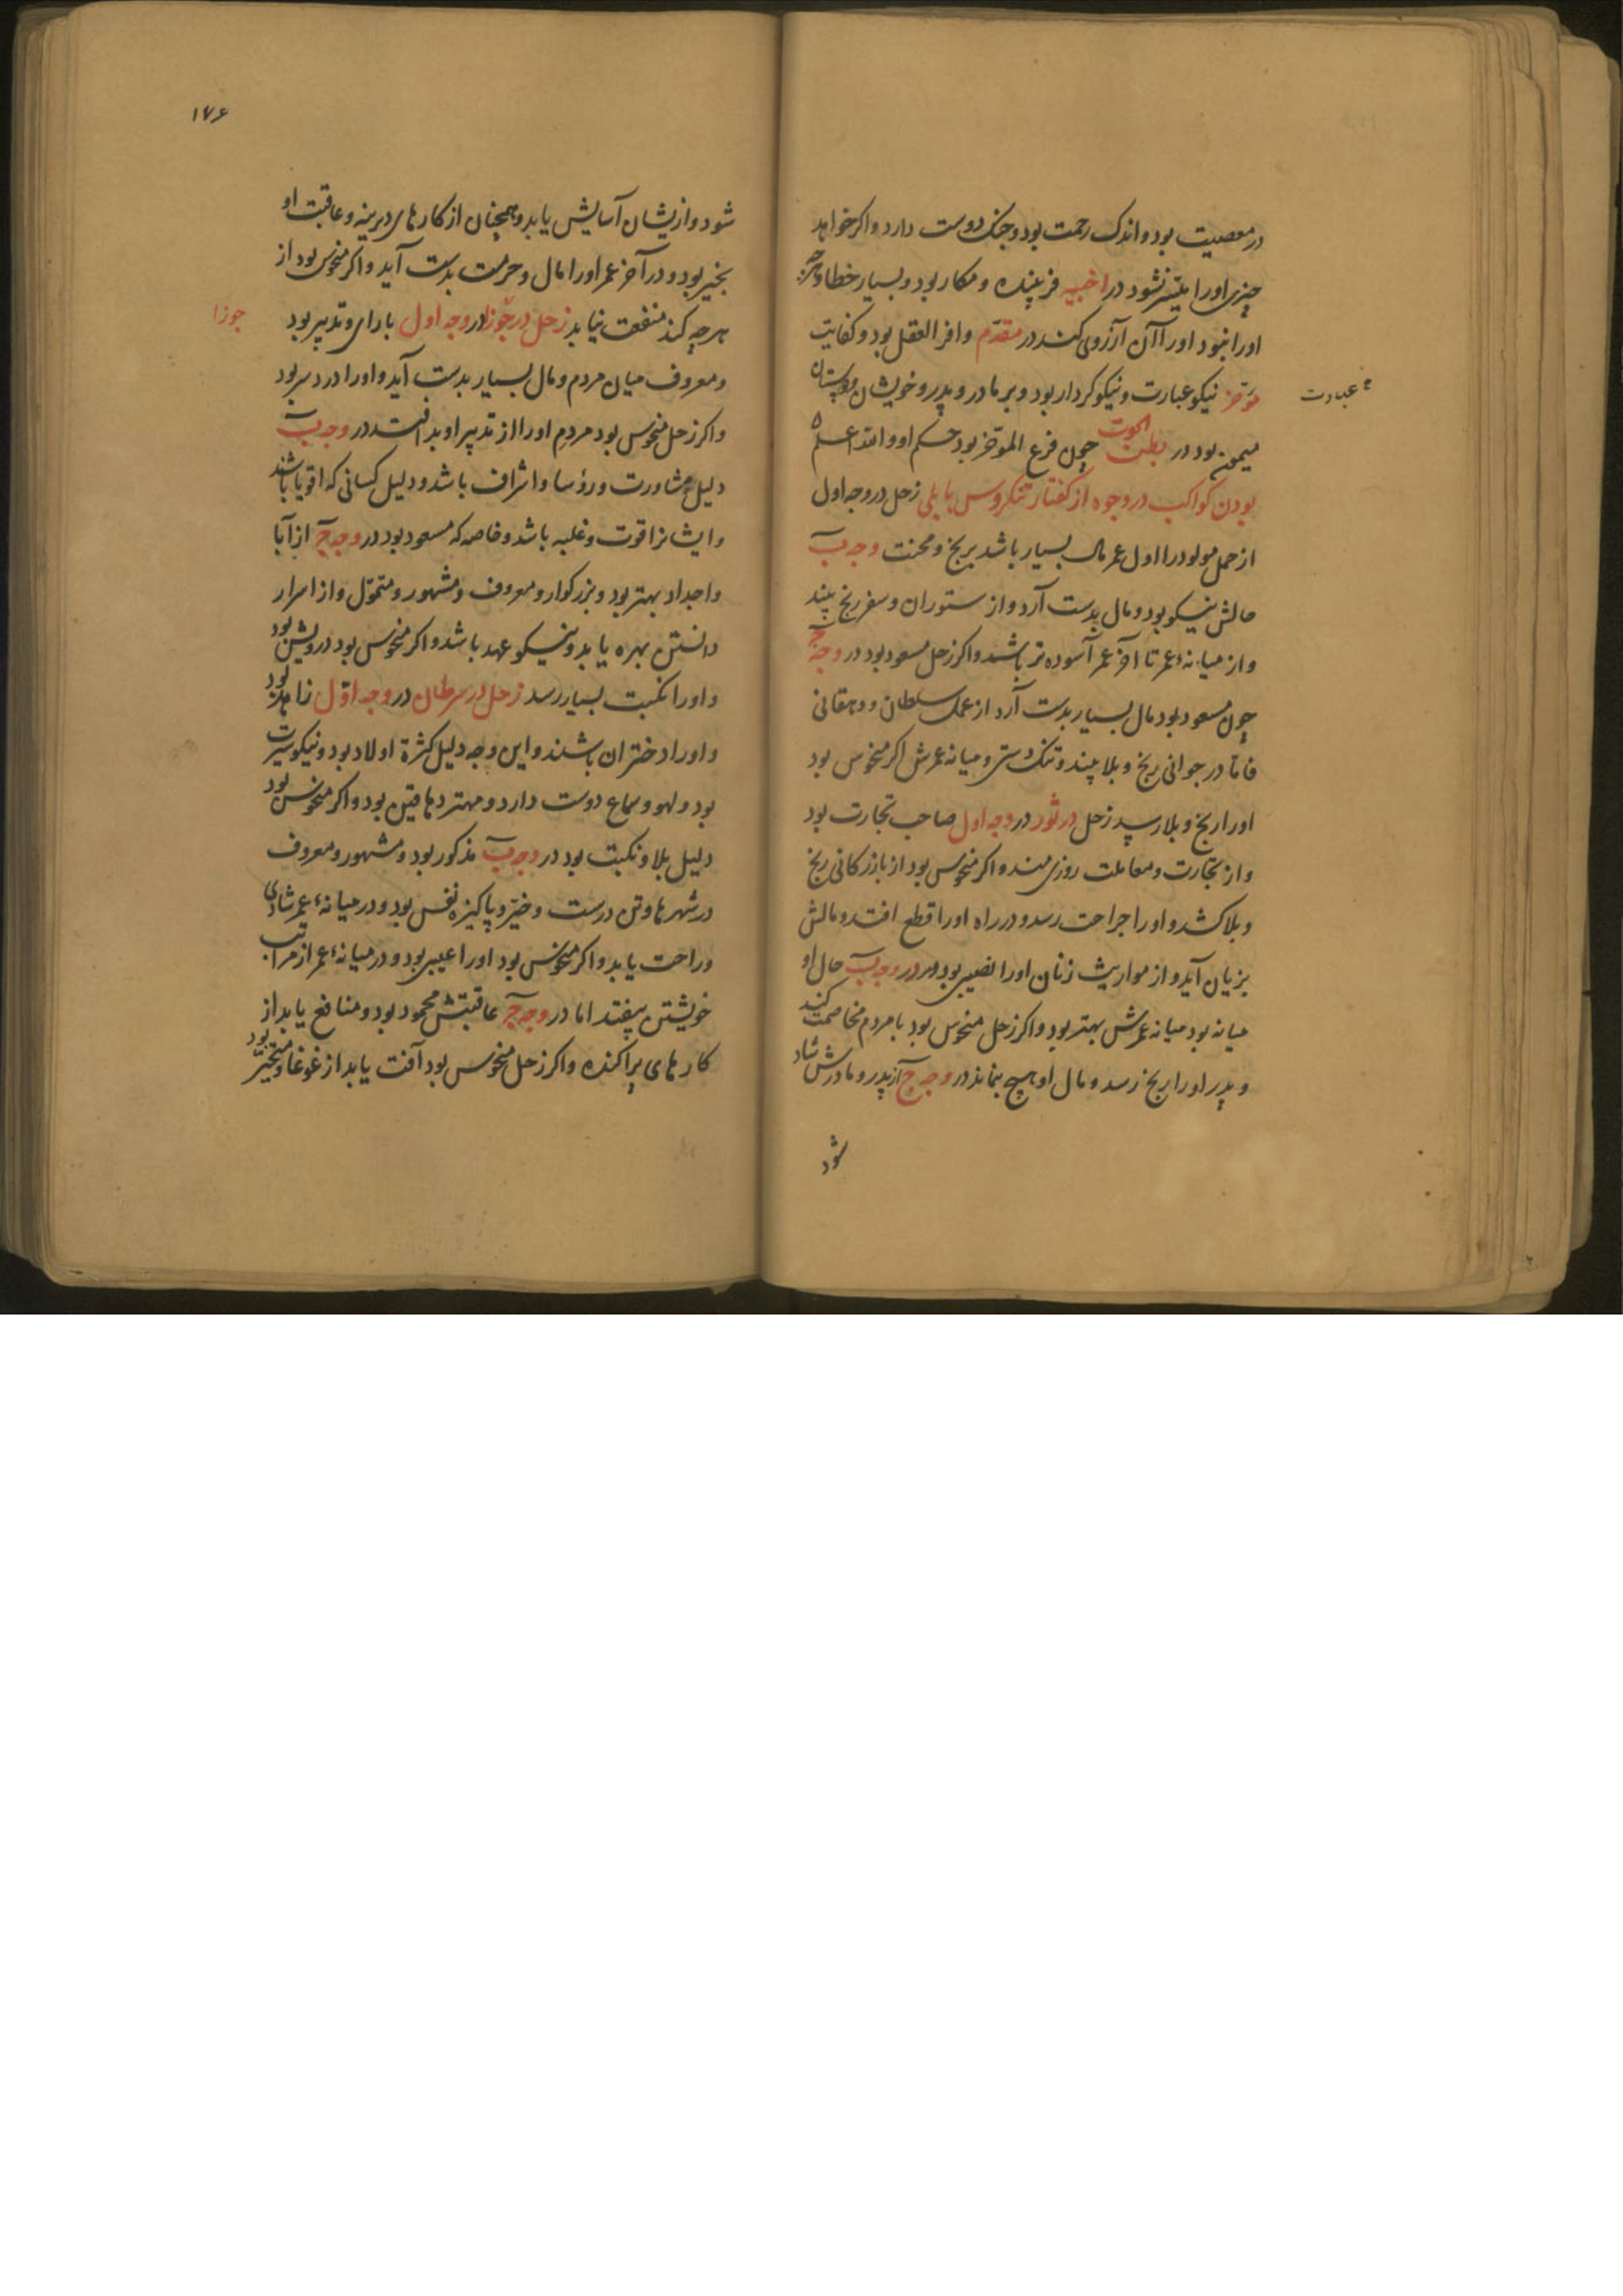 در معصیت بود و اندک رحمت بود و جنک دوست دارد و اکر خواهد
چیزی اورا میسّر نشود در اخبیه فریبنده و مکار بود و بسیار خطا و
اورا نبود اورا آن آرزوی کند در مقدّم وافر العقل بود و کفایت
مؤخر نیکو عبارت و نیکو کردار بود و بر مادر و پدر و خویشان و دوستان
عبارت
میمون بود در بطن الحوت چون فرع المؤخر بود حکم او و الله اعلم
بودن کواکب در وجوه از کفتار تنکروس بابلی زحل در وجه اول
از حمل مولود را اول عمر مال بسیار باشد برنج و محنت وجه ب
حالش نیکو بود و مال بدست آرد و از ستوران و سفر رنج بیند
و از میانهٔ عمر تا آخر عمر آسوده تر باشد و اکر زحل مسعود بود در وجه ج
چون مسعود بود مال بسیار بدست آرد از عمل سلطان و دهقانی
فاما در جوانی رنج و بلا بیند و تنک دستی و میانه عمرش اکر منحوس بود
اورا رنج و بلا رسد زحل در ثور در وجه اول صاحب تجارت بود
و از تجارت و معاملت روزی مند و اکر منحوس بود از بازرکانی رنج
و بلا کشد و اورا جراحت رسد و در راه اورا قطع افتد و مالش
بزیان آید و از مواریث زنان اورا نصیبی بود و در وجه ب حال او
میانه بود میانه عمرش بهتر بود و اکر زحل منحوس بود با مردم مخاصمت کند
و پدر اورا رنج رسد و مال او هیچ بنماند در وجه ج از پدر و مادرش شاد
شود
۱۷۶
شود و ازیشان آسایش یابد و همچنان از کارهای دیرینه و عاقبت او
بخیر بود و در آخر عمر اورا مال و حرمت بدست آید و اکر منحوس بود از
هرچه کند منفعت نیابد زحل در جوزا در وجه اول با رای و تدبیر بود
جوزا
و معروف میان مردم و مال بسیار بدست آید و اورا درد سر بود
و اکر زحل منحوس بود مردم اورا از تدبیر او بد افتد در وجه ب
دلیل مشاورت و رؤسا و اشراف باشد و دلیل کسانی که اقویا باشند
و ایشانرا قوت و غلبه باشد و خاصه که مسعود بود در وجه ج از آبا
و اجداد بهتر بود و بزرکوار و معروف و مشهور و متموّل و از اسرار
دانستن بهره یابد و نیکو عهد باشد و اکر منحوس بود درویش بود
و اورا نکبت بسیار رسد زحل در سرطان در وجه اوّل زاهد بود
و اورا دختران باشند و این وجه دلیل کثرة اولاد بود و نیکو سیرت
بود و لهو و سماع دوست دارد و مهتر دهاقین بود و اکر منحوس بود
دلیل بلا و نکبت بود در وجه ب مذکور بود و مشهور و معروف
در شهرها و تن درست و خیّر و پاکیزه نفس بود و در میانهٔ عمر شادی
و راحت یابد و اکر منحوس بود اورا عیبی بود و در میانهٔ عمر از مراتب
خویشتن بیفتد اما در وجه ج عاقبتش محمود بود و منافع یابد از
کارهای پراکنده و اکر زحل منحوس بود آفت یابد از غوغا و متحیّر بود